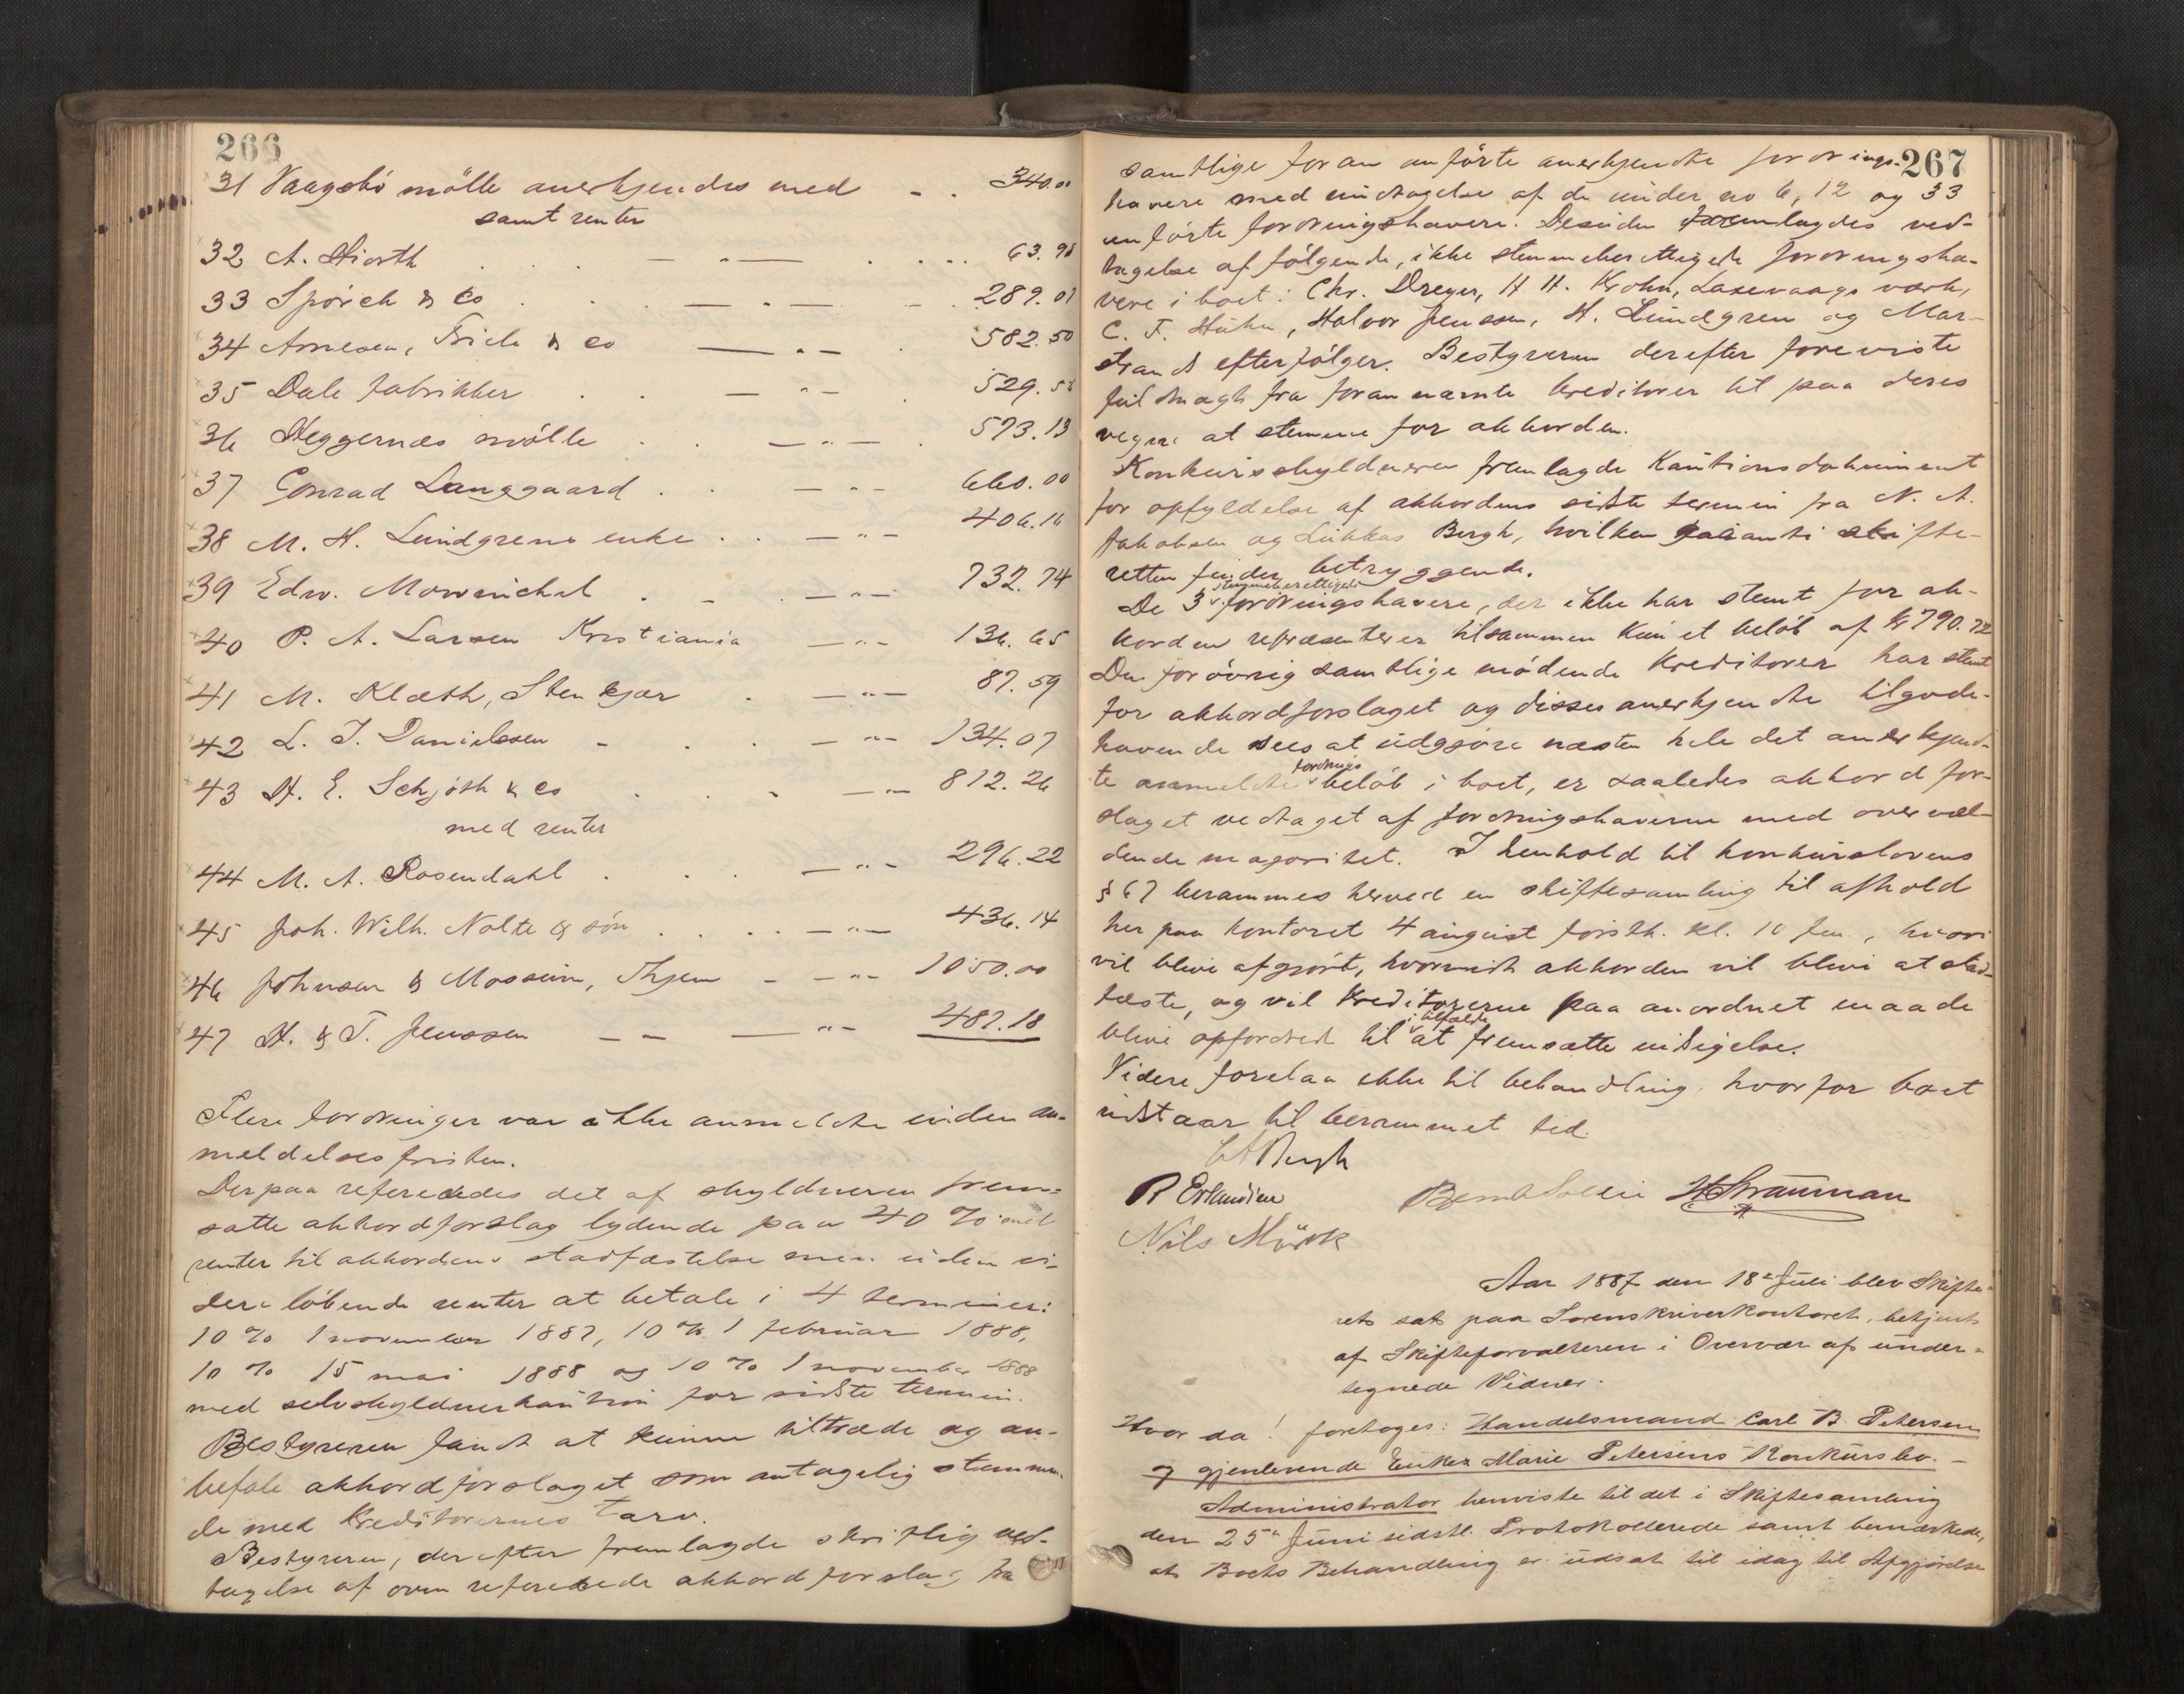 266
31 Vaagsbö mölle anerkjendes med - . 340.00
samt renter
32 A. Hiorth . . . — " — . . . 63.98
33 Spörck & Co . . . — " — . . 289.01
34 Arnesen, Friele & co — " — . 582.50
35 Dale fabrikker . . — " — . 529.56
36 Heggernæs mölle . . — " — . 573.13
37 Conrad Langgaard . . — " — 660.00
38 M. H. Lundgrens enke . . — " — 406.16
39 Edw. Mowinckel . . . — " — 732.74
40 P. A. Larsen Kristiania — " — 136.65
41 M. Klæth, Stenkjær . — " — 87.59
42 L. J. Danielssen - . . — " — 134.07
43 H. E. Schjöth & co . . . — " — 812.26
med renter
44 M. A. Rosendahl . . . — " — 296.22
45 Joh. Wilh. Nolte & sön . . . — " — 436.14
46 Johnsen & Mosseim, Thjem - — " — 1050.00
47 H. & T. Jenssen — — — " — 487.18
Flere fordringer var ikke anmeldte inden an-
meldelsesfristen.
Derpaa refereredes det af skyldneren frem-
satte akkordforslag lydende paa 40 % med
renter til akkordens stadfæstelse men uden vi-
dere löbende renter at betale i 4 terminer:
10 % 1 november 1887, 10 % 1 februar 1888,
10 % 15 mai 1888 og 10 % 1 november 1888
med selvskyldnerkaution for sidste termin.
Bestyreren fandt at kunne tiltræde og an-
befale akkordforslaget som antagelig stemmen-
de med kreditorernes tarv.
Bestyreren, derefter fremlagde skriftlig ved-
tagelse af oven refererede akkordforslag fra
267
samtlige foran anförte anerkjendte fordrings-
havere med undtagelse af de under no 6, 12 og 33
anförte fordringshavere. Desuden fremlagdes ved-
tagelse af fölgende, ikke stemmeberettigede fordringsha-
vere i boet: Chr. Dreyer, H. H. Krohn, Laxevaags værk,
C. F. Huhn, Halvor Jenssen, H. Lundgren og Mar-
strands efterfölger. Bestyreren derefter foreviste
fuldmagt fra forannævnte kreditorer til paa deres
vegne at stemme for akkorden.
Konkursskyldneren fremlagde Kautionsdokument
for opfyldelse af akkordens sidste termin fra N. A.
Jakobsen og Lukkas Bergh, hvilken garanti skifte-
retten finder betryggende.
De 3 stemmeberettigede fordringshavere, der ikke har stemt for ak-
korden repræsenterer tilsammen kun et belöb af kr 790.72
Da forövrig samtlige mödende Kreditorer har stemt
for akkordforslaget og disses anerkjendte tilgode-
havende sees at udgjöre næsten hele det anerkjend-
te anmeldte fordrings belöb i boet, er saaledes akkordfor-
slaget vedtaget af fordringshaverne med overvæl-
dende majoritet. I henhold til konkurslovens
§ 67 berammes herved en skiftesamling til afhold
her paa kontoret 4 august förstk. kl. 10 fm., hvori
vil blive afgjort, hvorvidt akkorden vil blive at stad-
fæste, og vil kreditorerne paa anordnet maade
blive opfordret til i tilfælde at fremsætte indsigelse.
Videre forelaa ikke til behandling, hvorfor boet
udstaar til berammet tid.
CA Bergh
R Erlandsen Bernt Sollie H Strauman
Nils Mörk
Aar 1887 den 18de Juli blev Skifte-
ret sat paa Sorenskriverkontoret, betjent
af Skifteforvalteren i Overvær af under-
tegnede Vidner.
Hvor da! foretoges: Handelsmand Carl B. Petersen
og gjenlevende Enkes Marie Petersens Konkursbo. -
Administrator henviste til det i Skiftesamling
den 25de Juni sidstl. Protokollerede samt bemærkede,
at Boets Behandling er udsat til idag til Afgjörelse